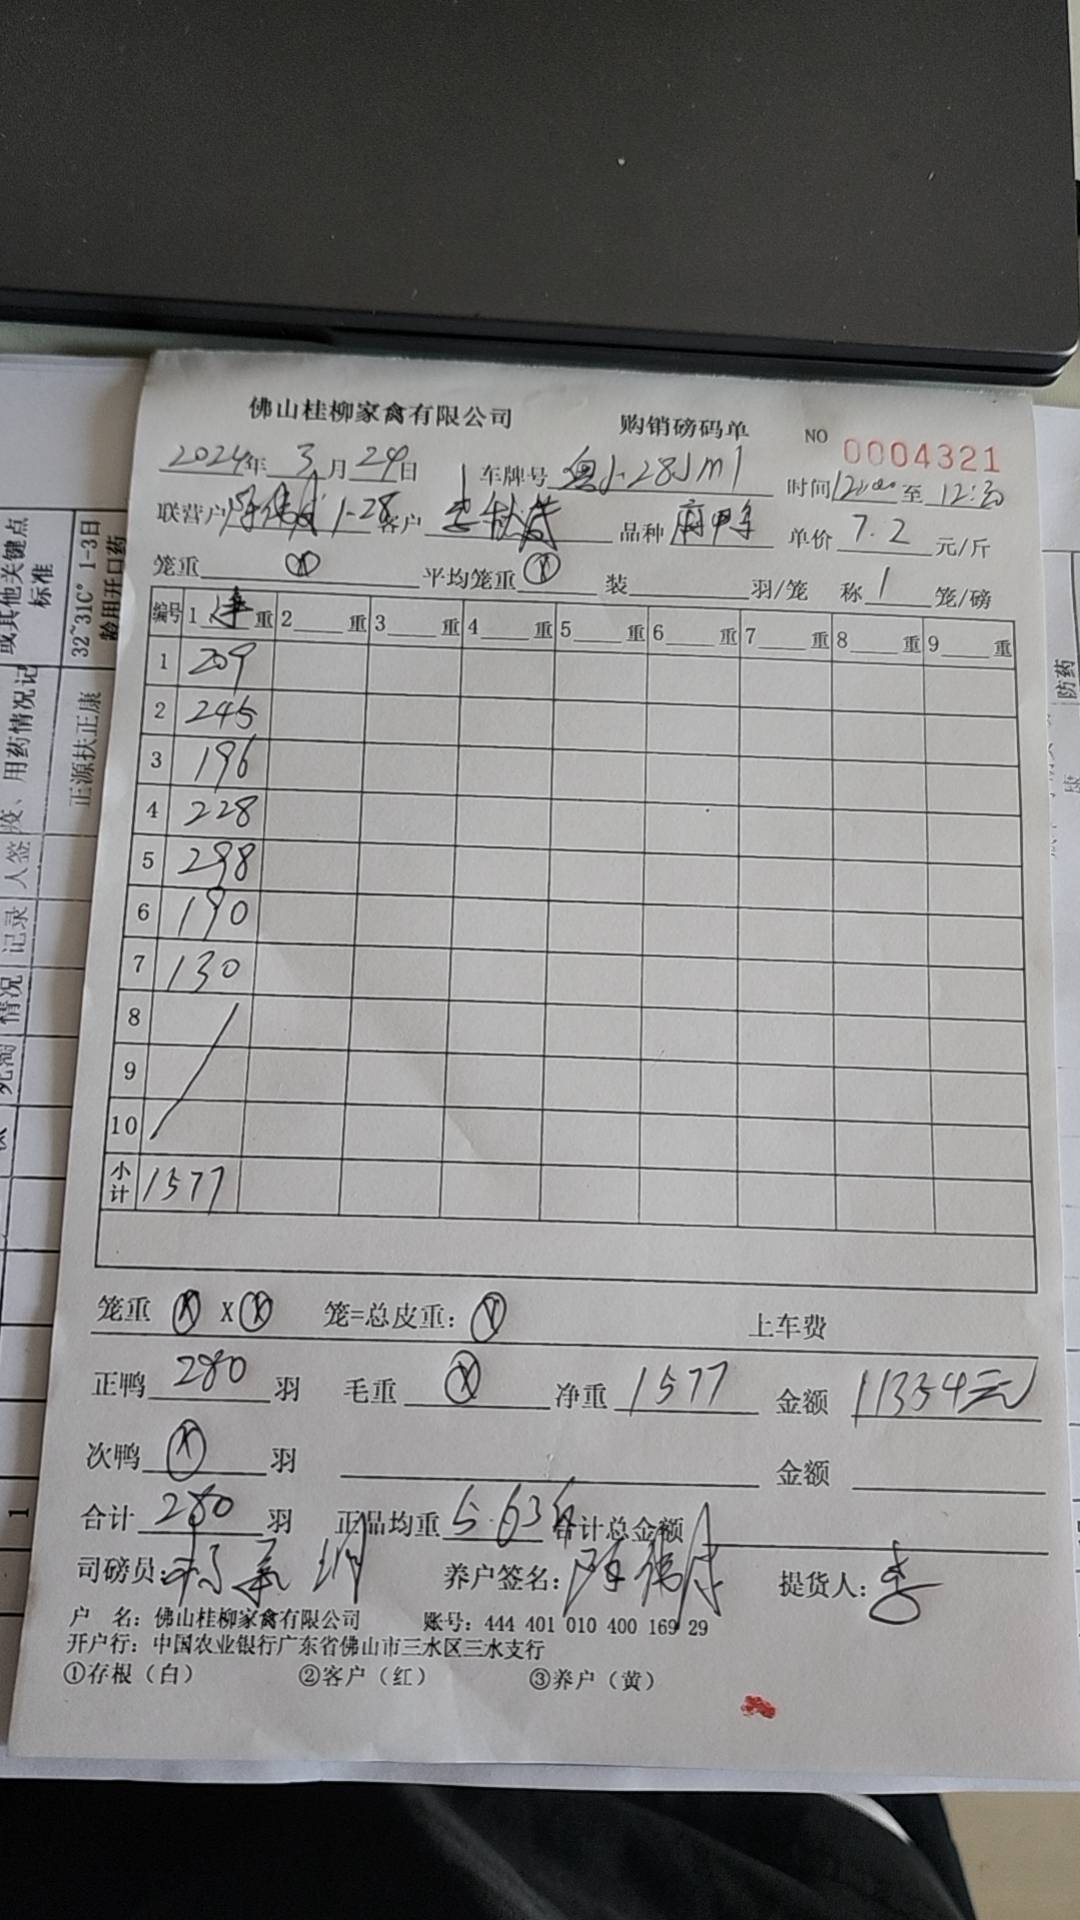 佛山桂柳家禽有限公司 购销磅码单 NO 0004321
2024年 3月 29日 车牌号 粤J·28JM1 时间12:00至 12:30
联营户 1-28 客户 品种 麻鸭 单价 7.2 元/斤
笼重 ⓧ 平均笼重 ⓧ 装 羽/笼 称 1 笼/磅
编号 1 净重 2 重 3 重 4 重 5 重 6 重 7 重 8 重 9 重
1 209
2 245
3 196
4 228
5 298
6 190
7 130
8
9
10
小计 1577
笼重 ⓧ X ⓧ 笼=总皮重: ⓧ 上车费
正鸭 280 羽 毛重 ⓧ 净重 1577 金额 11354元
次鸭 ⓧ 羽 金额
合计 280 羽 正品均重 5.63斤 合计总金额
司磅员: 养户签名: 提货人: 李
户 名: 佛山桂柳家禽有限公司 账号: 444 401 010 400 169 29
开户行: 中国农业银行广东省佛山市三水区三水支行
①存根（白） ②客户（红） ③养户（黄）
或其他关键点
标准
32~31C° 1-3日
龄用开口药
用药情况记
正源扶正康
人签
记录
情况
1
防药